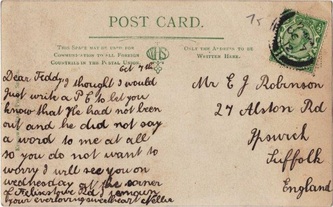 POST CARD.
THIS SPACE MAY BE USED FOR
COMMUNICATION TO ALL FOREIGN
COUNTRIES IN THE POSTAL UNION.
ONLY THE ADDRESS TO BE
WRITTEN HERE.
Oct 7th
Dear Teddy, I thought I would
just write a P C to let you
know that He had not been
out and he did not say
a word to me at all
so you do not want to
worry I will see you on
wednesday at the corner
Felixstowe Rd I remain
your everloving sweetheart Nellie
Mr E J Robinson
27 Alston Rd
Ipswich
Suffolk
England